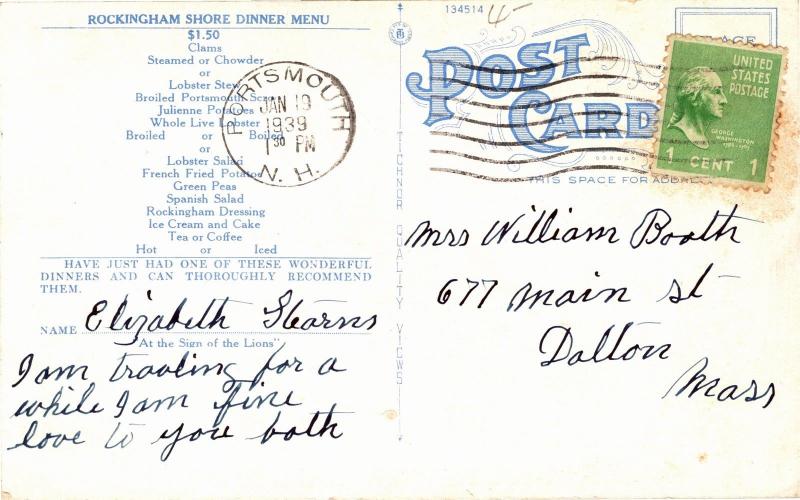 ROCKINGHAM SHORE DINNER MENU
$1.50
Clams
Steamed or Chowder
or
Lobster Stew
Broiled Portsmouth
Julienne Potatoes
Whole Live Lobster
Broiled or Boiled
or
Lobster Salad
French Fried Potatoes
Green Peas
Spanish Salad
Rockingham Dressing
Ice Cream and Cake
Tea or Coffee
Hot or Iced
HAVE JUST HAD ONE OF THESE WONDERFUL
DINNERS AND CAN THOROUGHLY RECOMMEND
THEM.
NAME Elizabeth Stearns
"At the Sign of the Lions"
I am traveling for a
while I am fine
love to you both
PORTSMOUTH
JAN 19
1939
1 30 PM
N. H.
TICHNOR QUALITY VIEWS
134514
4-
POST
CARD
THIS SPACE FOR ADDRESS
UNITED
STATES
POSTAGE
GEORGE
WASHINGTON
CENT 1
Mrs William Booth
677 Main St
Dalton
Mass